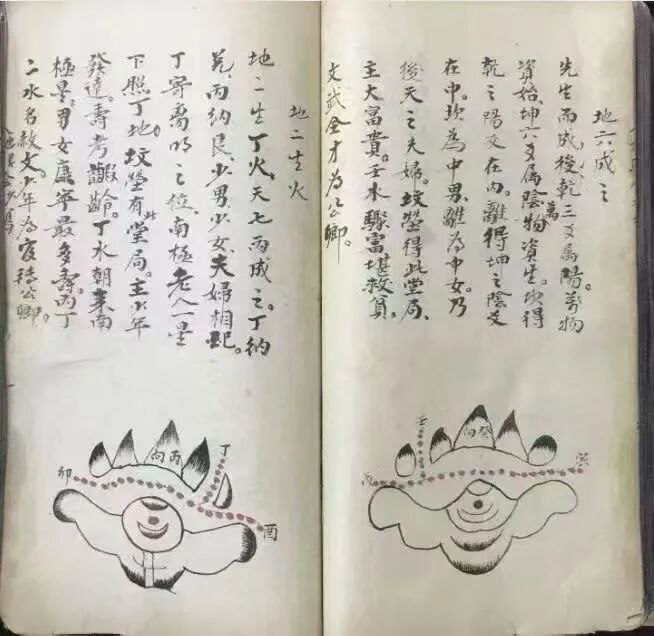 地六成之
先生而成後。乾三爻属陽。萬物
資始。坤六爻属陰。萬物資生。坎得
乾之陽爻在内。離得坤之陰爻
在中。坎為中男。離為中女。乃
後天之夫婦。坟塋得此堂局、
主大富貴。壬水驟富堪救貧。
文武全才為公卿。
壬
癸向
地二生火
地二生丁火,天七丙成之。丁納
兌,丙納艮。少男少女夫婦相配。
丁寄離明之位,南極老人一星
下照丁地。坟塋有此堂局。主少年
發達。壽考齡。丁水朝來南
極星。男女應寧最多壽。丙丁
二水名赦文。少年為公卿。
丁
丙向
卯
酉